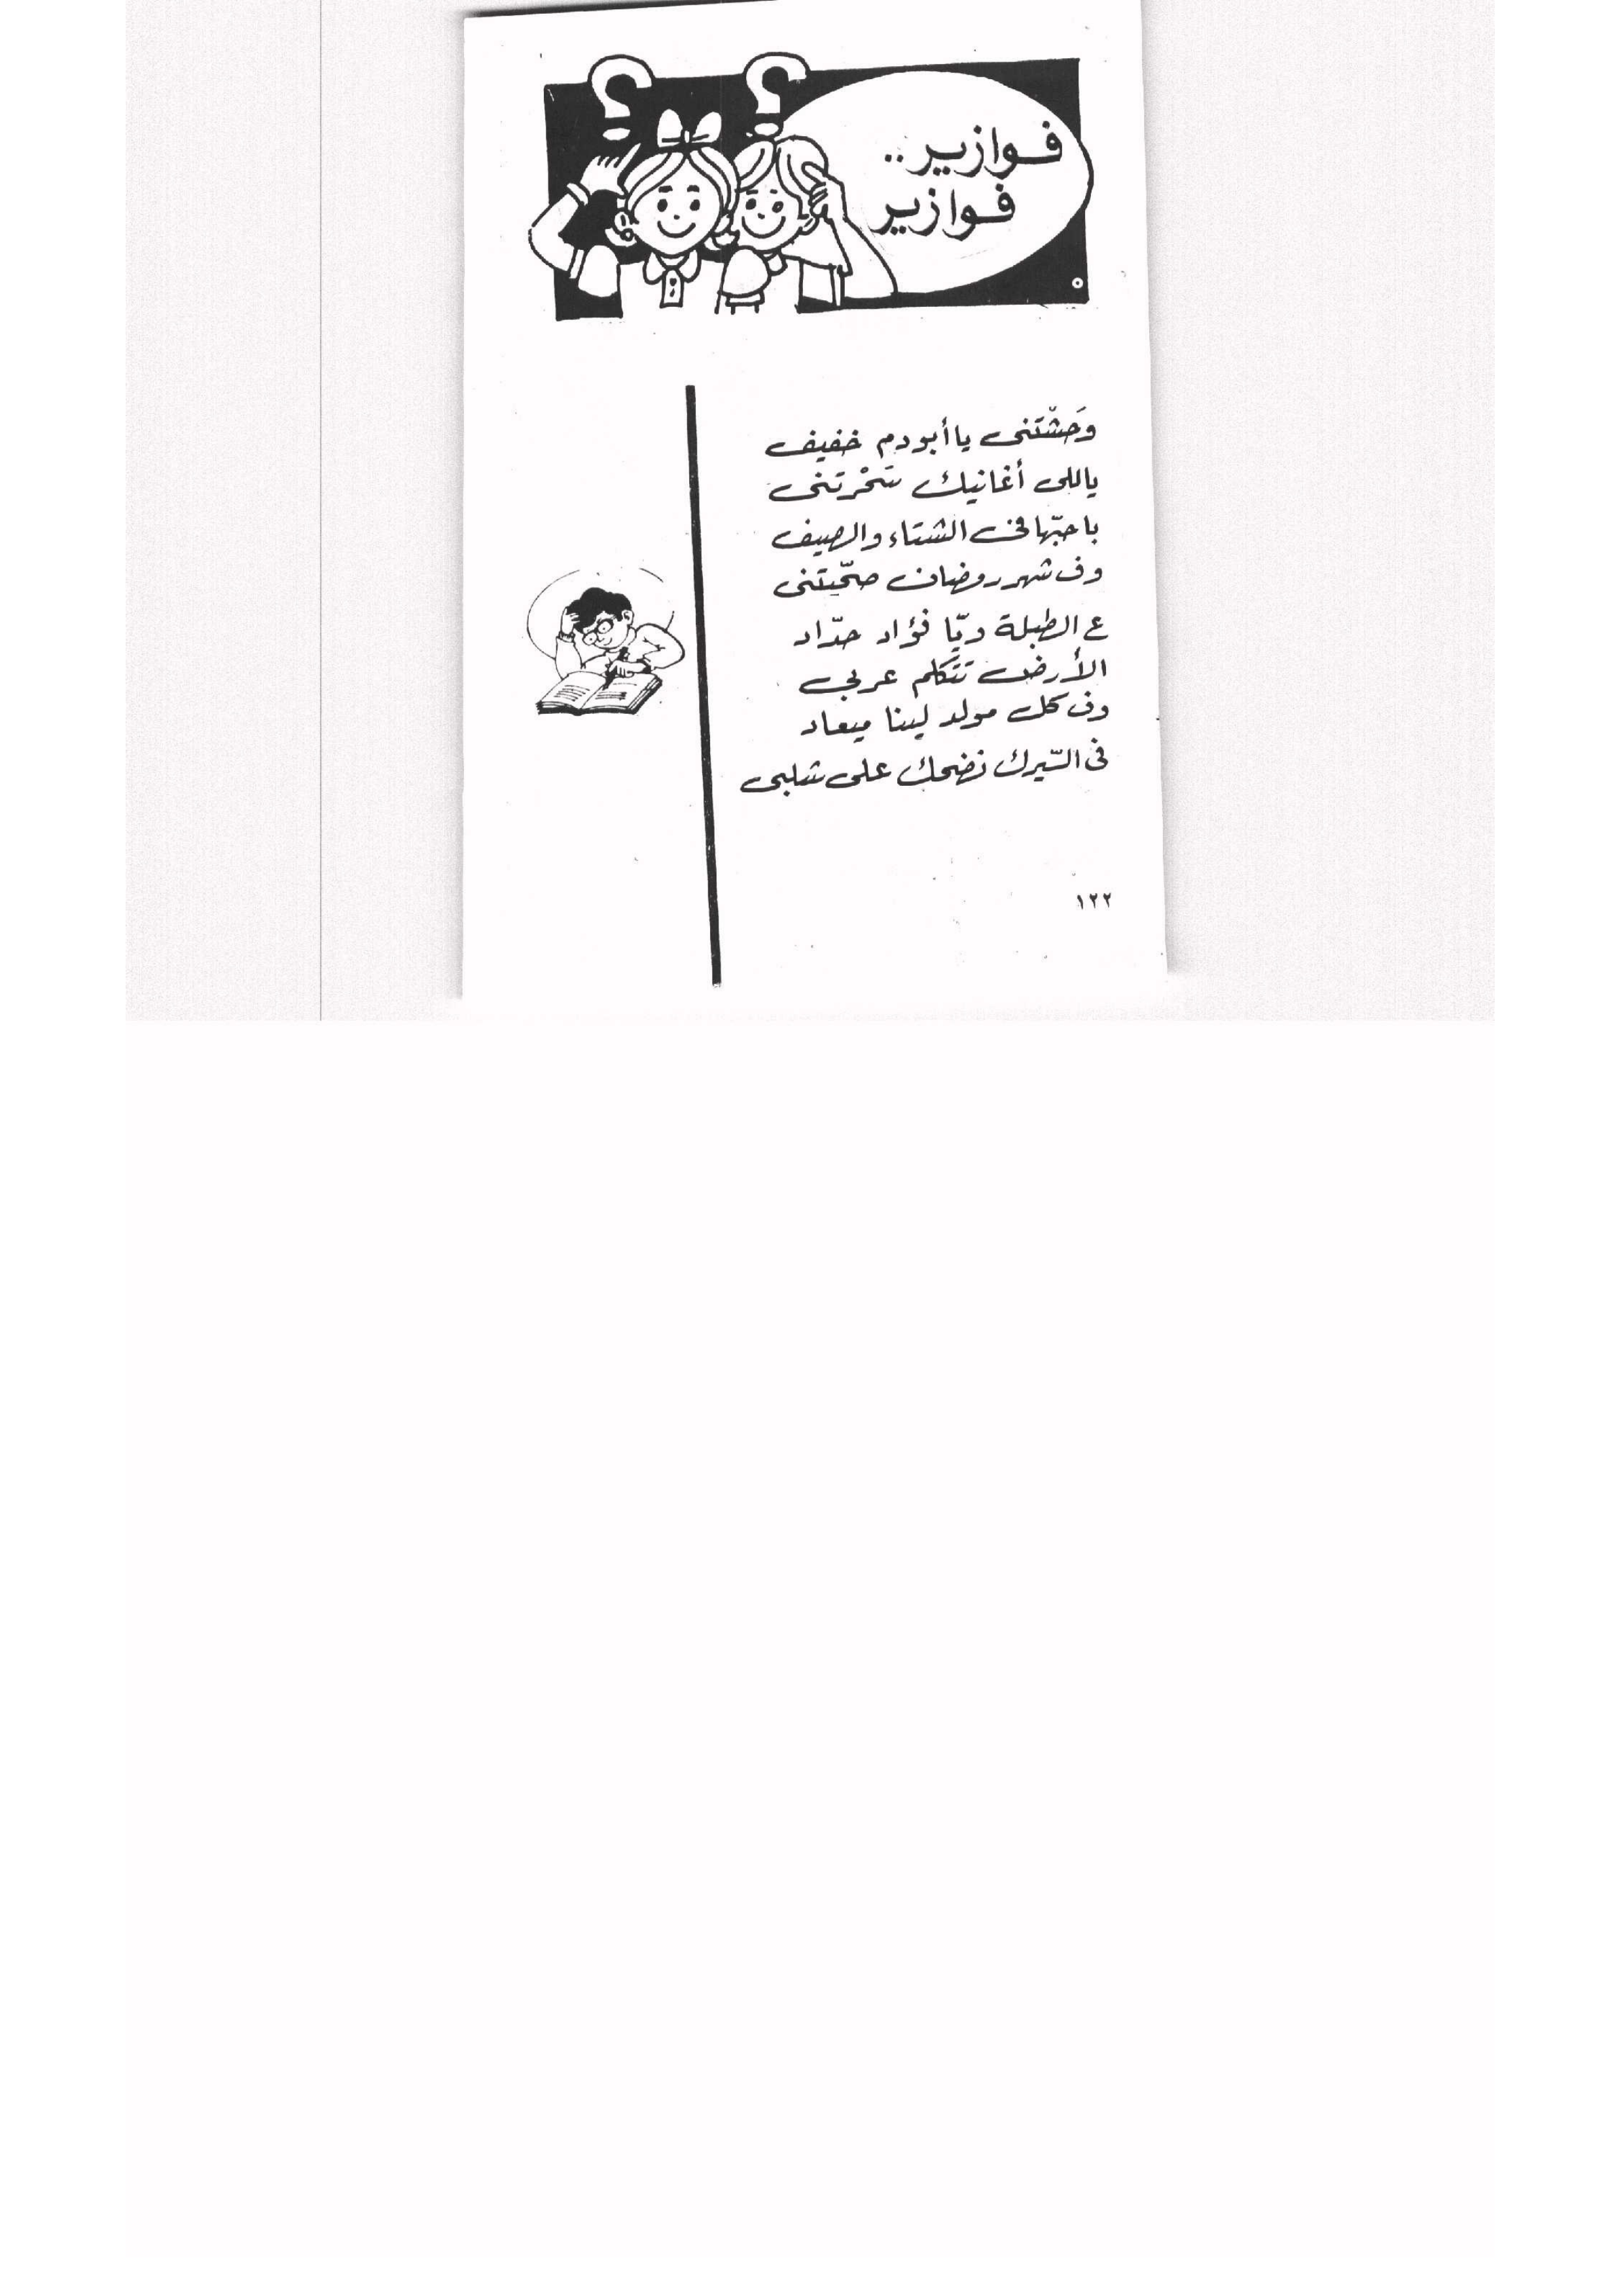 فوازير..
فوازير
وَحَشْتَنى يا أبو دم خفيف
ياللى أغانيك سَحْرتنى
باحبّها فى الشتاء والصيف
وف شهر رمضان صحّيتنى
ع الطبلة ويّا فؤاد حدّاد
الأرض تتكلم عربى
وف كل مولد لينا ميعاد
فى السّيرك نضحك على شلبى
١٢٢